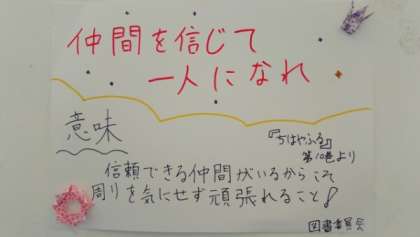 仲間を信じて
一人になれ
意味
『ちはやふる』
第10巻より
信頼できる仲間がいるからこそ
周りを気にせず頑張れること！
図書委員会